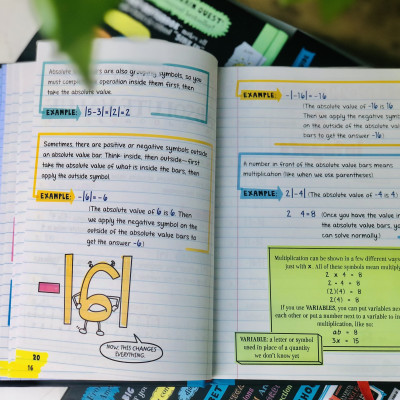 Absolute bars are also grouping symbols, so you
must operation inside them first, then
take the absolute value.
EXAMPLE: |5-3|=|2|=2
Sometimes, there are positive or negative symbols outside
an absolute value bar. Think: inside, then outside—first
take the absolute value of what is inside the bars, then
apply the outside symbol.
EXAMPLE: -|6|=-6
(The absolute value of 6 is 6. Then
we apply the negative symbol on the
outside of the absolute value bars to
get the answer -6.)
-|6|
NOW, THIS CHANGES
EVERYTHING.
20
16
EXAMPLE: -|-16|=-16
(The absolute value of -16 is 16.
Then we apply the negative
on the outside of the absolute
bars to get the answer -16.)
A number in front of the absolute value bars means
multiplication (like when we use parentheses).
EXAMPLE: 2|-4| (The absolute value of -4 is 4.)
2 · 4=8 (Once you have the value
the absolute value bars, you
can solve normally.)
Multiplication can be shown in a few different ways
just with x. All of these symbols mean
2 x 4 = 8
2 · 4 = 8
(2)(4) = 8
2(4) = 8
If you use VARIABLES, you can put variables
each other or put a number next to a variable to
multiplication, like so:
ab = 8
3x = 15
VARIABLE: a letter or symbol
used in place of a quantity
we don't know yet
QUEST